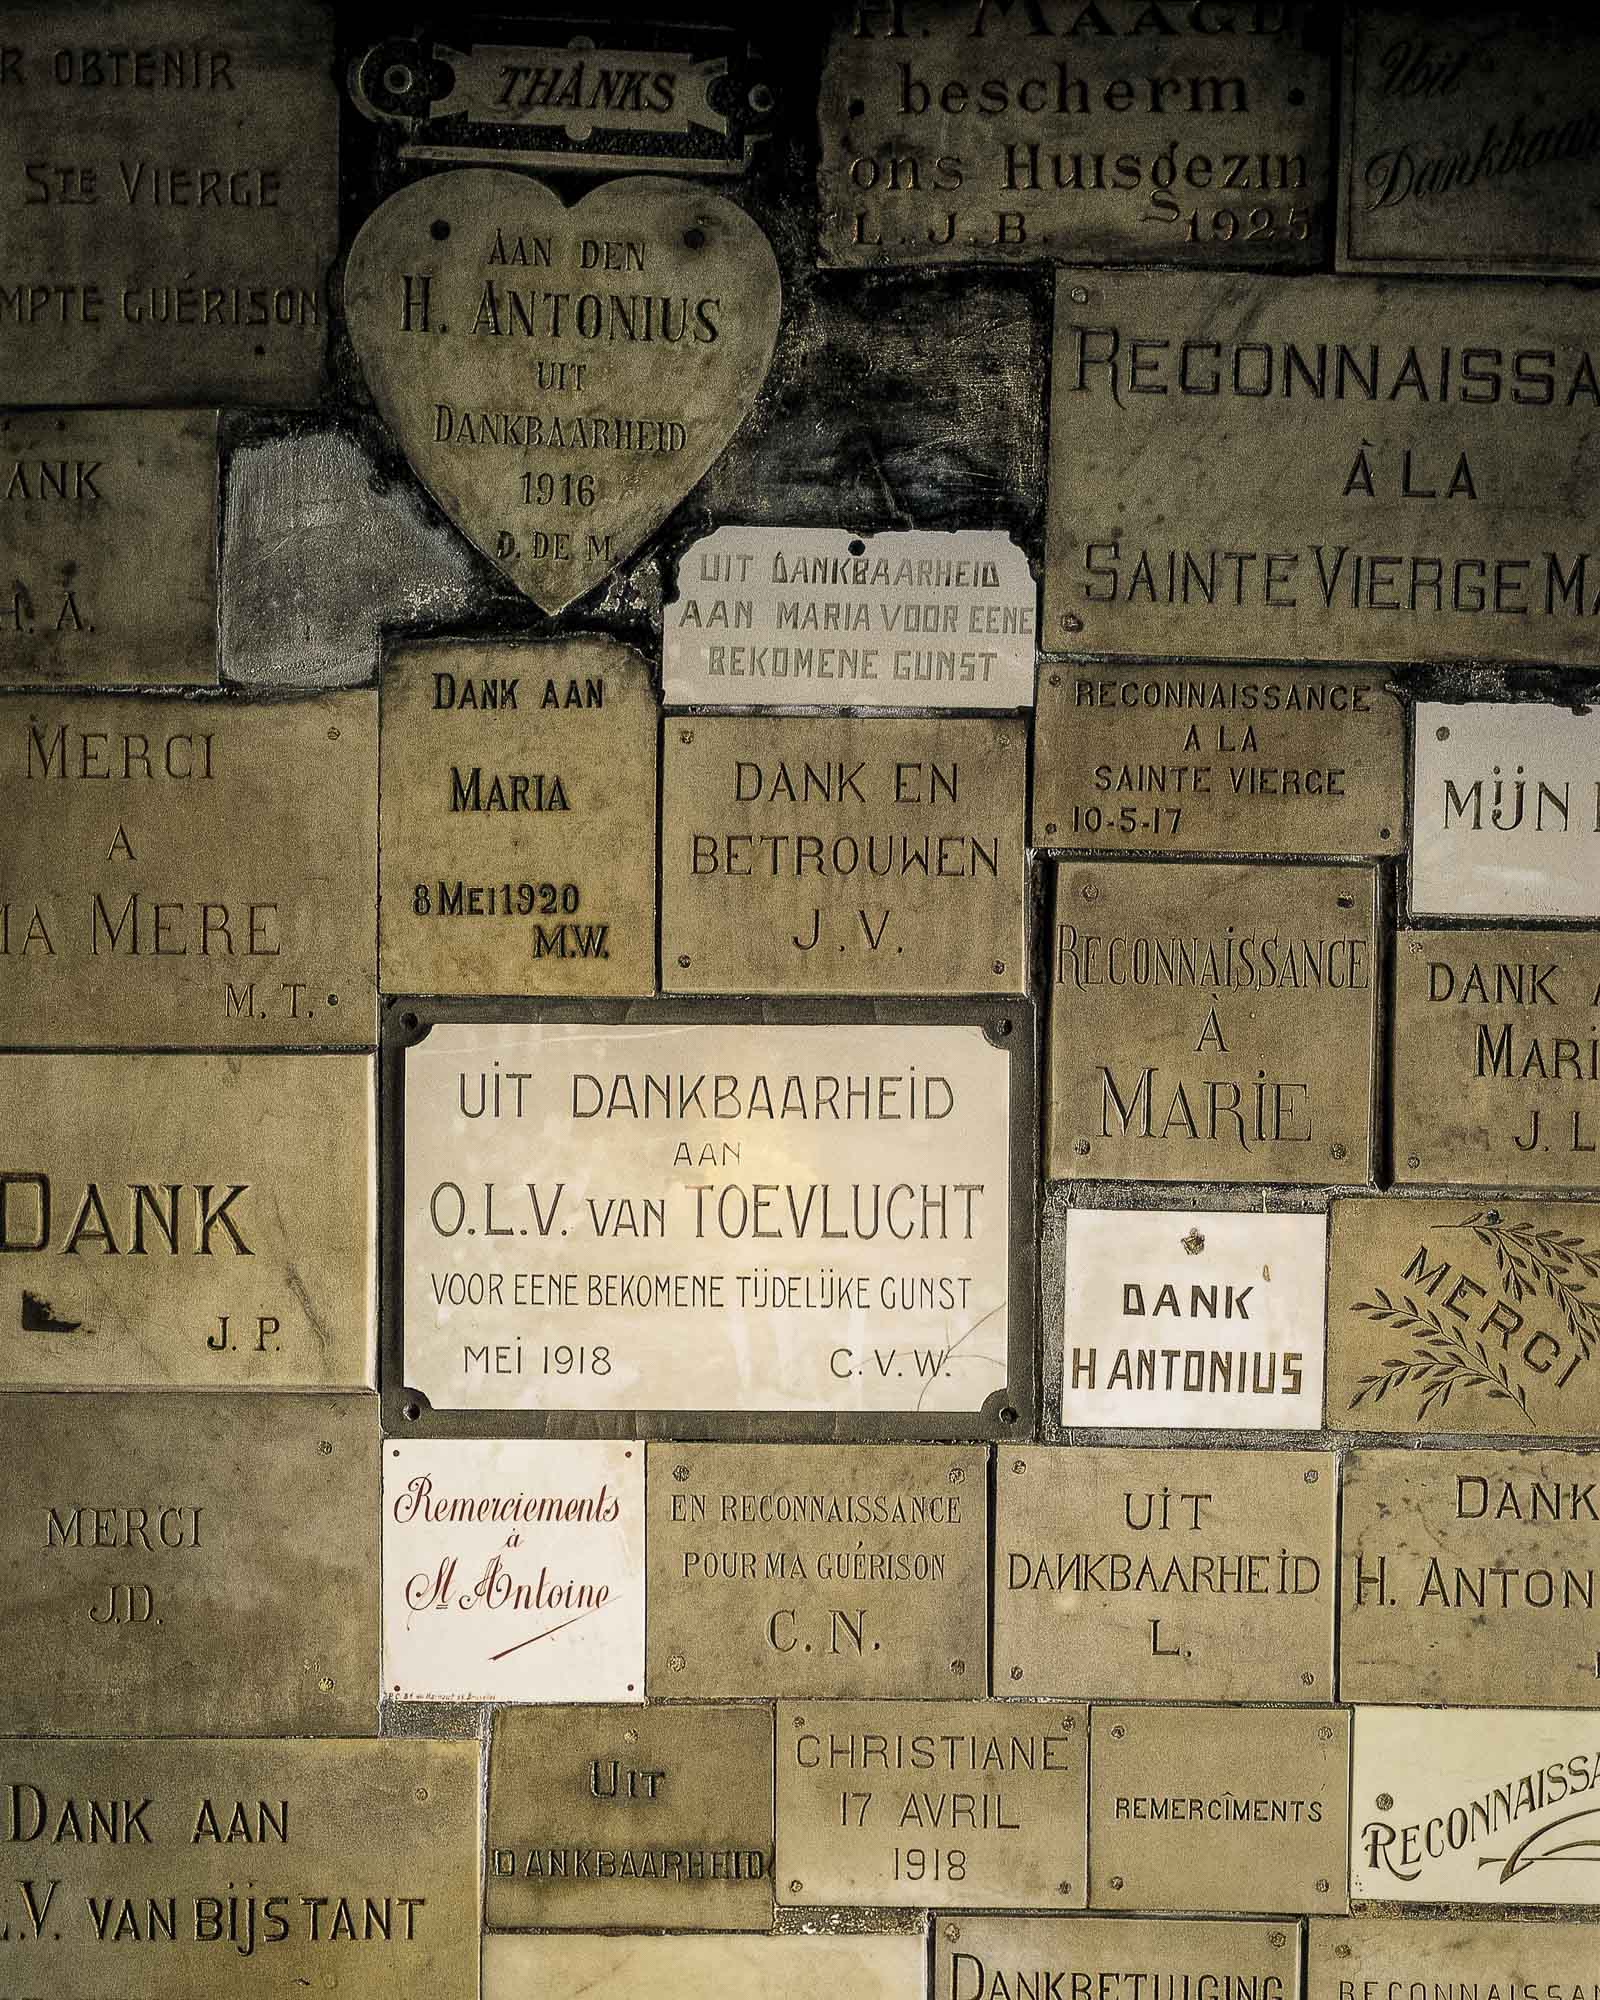 R OBTENIR
STE VIERGE
MPTE GUÉRISON
THANKS
AAN DEN
H. ANTONIUS
UIT
DANKBAARHEID
1916
D. DE M.
H. MAAGD
bescherm
ons Huisgezin
L. J. B. S 1925
Uit
Dankbaar
RECONNAISSA
À LA
SAINTE VIERGE MA
ANK
H. A.
UIT DANKBAARHEID
AAN MARIA VOOR EENE
BEKOMENE GUNST
MERCI
A
MA MERE
M. T.
DANK AAN
MARIA
8 MEI 1920
M.W.
DANK EN
BETROUWEN
J. V.
RECONNAISSANCE
A LA
SAINTE VIERGE
10-5-17
MIJN
RECONNAISSANCE
À
MARIE
DANK A
MARI
J. L
DANK
J. P.
UIT DANKBAARHEID
AAN
O.L.V. VAN TOEVLUCHT
VOOR EENE BEKOMENE TIJDELIJKE GUNST
MEI 1918 C. V. W.
DANK
H ANTONIUS
MERCI
MERCI
J.D.
Remerciements
à
St Antoine
EN RECONNAISSANCE
POUR MA GUÉRISON
C. N.
UIT
DANKBAARHEID
L.
DANK
H. ANTON
DANK AAN
L.V. VAN BIJSTANT
UIT
DANKBAARHEID
CHRISTIANE
17 AVRIL
1918
REMERCÎMENTS
RECONNAISSA
DANKBETUIGING
RECONNAISSAN